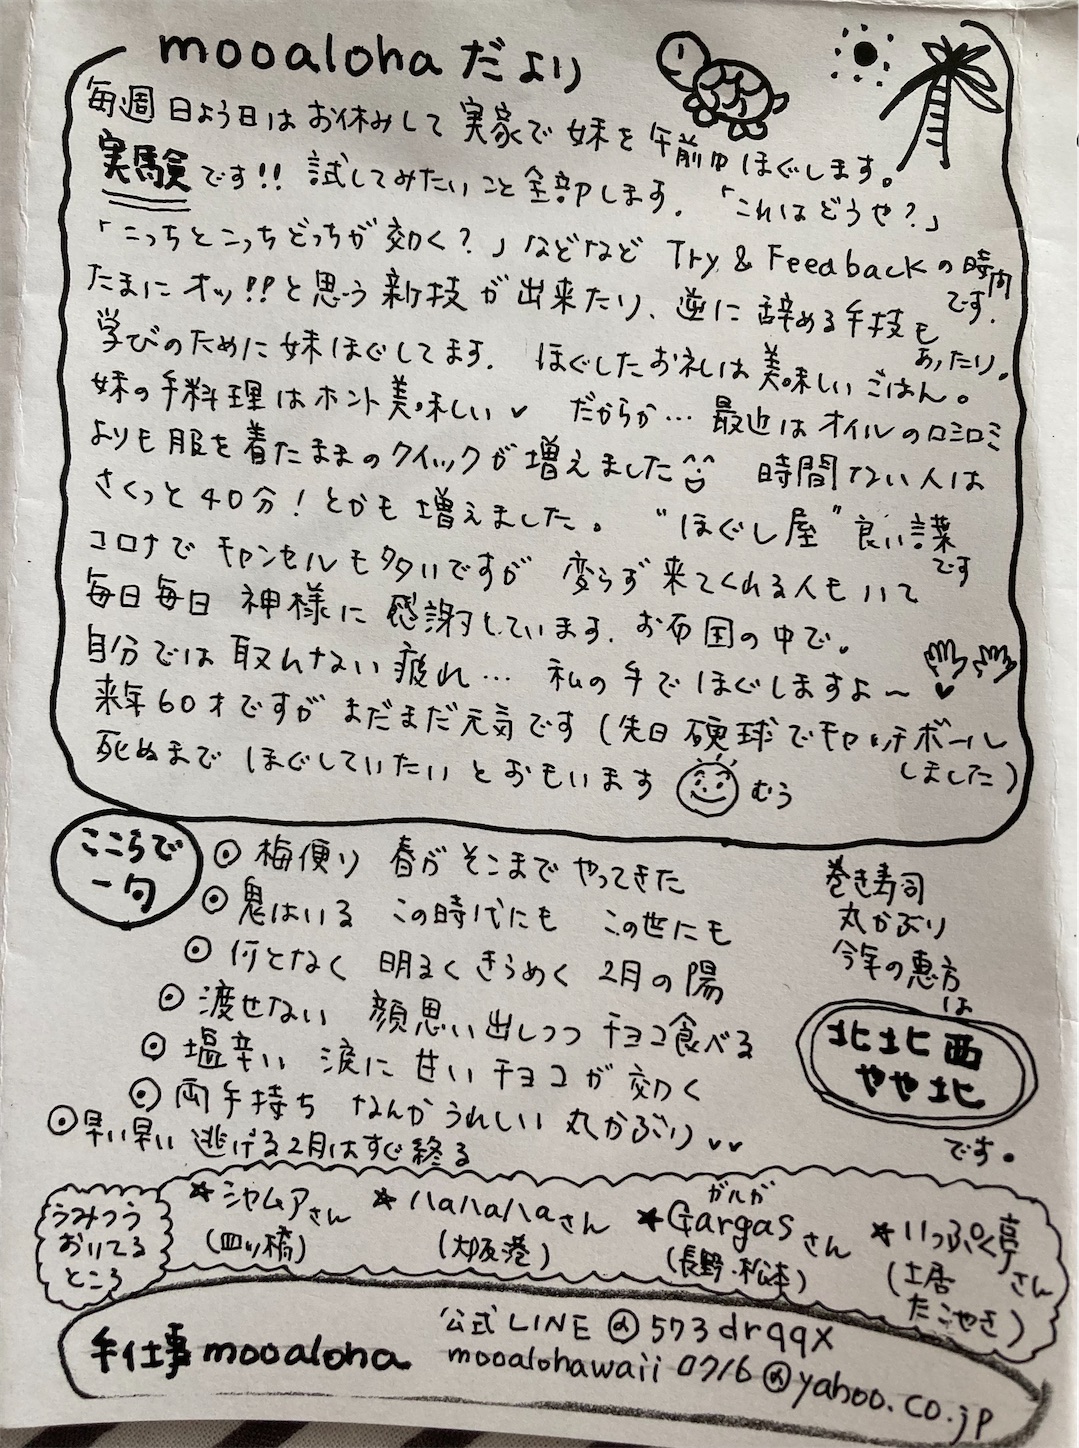 mooalohaだより
毎週日よう日はお休みして実家で妹を午前中ほぐします。
実験です!! 試してみたいこと全部します。「これはどうせ?」
「こっちとこっちどっちが効く?」などなど Try & Feedbackの時間です.
たまにオッ!!と思う新技が出来たり、逆に辞める手技もあったり。
学びのために妹ほぐしてます. ほぐしたお礼は美味しいごはん。
妹の手料理はホント美味しい✓ だからか… 最近はオイルのロミロミ
よりも服を着たままのクイックが増えました 時間ない人は
さくっと40分!とかも増えました。"ほぐし屋"良い言葉です
コロナでキャンセルも多いですが 変らず来てくれる人もいて
毎日毎日 神様に感謝しています. お布団の中で。
自分では取れない疲れ… 私の手でほぐしますよ〜
来年60才ですがまだまだ元気です(先日硬球でキャッチボールしました)
死ぬまでほぐしていたいとおもいます むう
ここらで
一句
◉ 梅便り 春がそこまでやってきた
◉ 鬼はいる この時代にも この世にも
◉ 何となく 明るくきらめく 2月の陽
◉ 渡せない 顔思い出しつつ チョコ食べる
◉ 塩辛い 涙に甘い チョコが効く
◉ 両手持ち なんかうれしい 丸かぶり
◉ 早い早い 逃げる2月はすぐ終る
巻き寿司
丸かぶり
今年の恵方
は
北北西
やや北
です。
うみつう
おいてる
ところ
★シャムアさん
(四ッ橋)
★HaHaHaさん
(大阪港)
ガルガ
★Gargasさん
(長野・松本)
★いっぷく亭さん
(土居
たこやき)
手仕事mooaloha
公式LINE @573drqqx
mooalohawaii0716@yahoo.co.jp